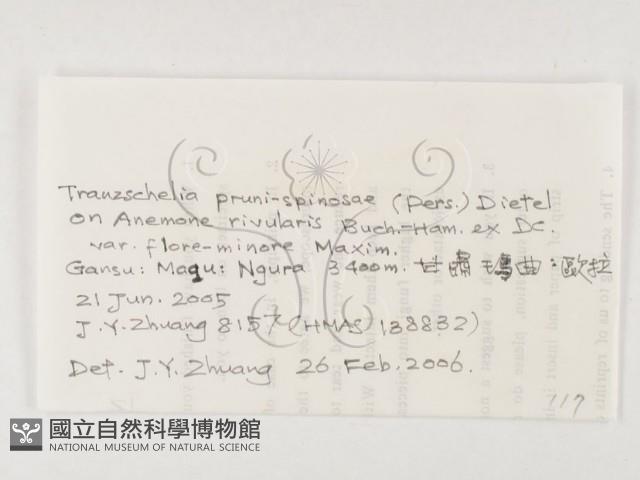 Tranzschelia pruni-spinosae (Pers.) Dietel
on Anemone rivularis Buch.-Ham. ex DC.
var. flore-minore Maxim.
Gansu: Maqu: Ngura 3400m. 甘肅瑪曲:歐拉
21 Jun. 2005
J.Y. Zhuang 8157 (HMAS 138832)
Det. J.Y. Zhuang 26 Feb. 2006.
117
國立自然科學博物館
NATIONAL MUSEUM OF NATURAL SCIENCE